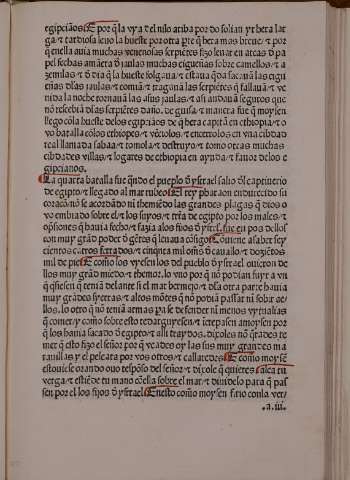 egipcianos. E por q̃ la vya del nilo arriba por do solian yr hera lar
ga ⁊ tardiosa leuo la hueste por otra parte q̃ hera mas breue: ⁊ por
q̃ enella auia muchas venenosas serpiẽtes fizo leuar en arcas d̃ pa
pel fechas amãera d̃ jaulas muchas cigueñas sobre camellos: ⁊ a
zemilas ⁊ d̃ dia q̃ la hueste folgaua ⁊ estaua q̃da sacauã las cigu
eñas d̃las jaulas ⁊ comiã ⁊ tragauã las serpiẽtes q̃ fallauã ⁊ ve
nida la noche tornauã las asus jaulas: ⁊ asi andauã seguros que
nõ resçebiã d̃las serpiẽtes daño. de guisa ⁊ manera fue q̃ moysen
llego cõla hueste delos egipcianos de q̃ hera capitã en ethiopia: ⁊ o
vo batalla cõlos ethiopes ⁊ vẽciolos: ⁊ encerrolos en vna cibdad
real llamada sabaa: ⁊ tomola ⁊ destruyo ⁊ tomo otras muchas
cibdades villas: ⁊ logares de ethiopia en ayuda ⁊ fauor delos e
gipcianos.
La quarta batalla fue q̃ndo el pueblo d̃ ysrael salio d̃l captiuerio
de egipto ⁊ llegado al mar rubeo. El rey pharaon endurecido su
coraçõ nõ se acordãdo ni themiẽdo las grandes plagas q̃ dios o
vo embiado sobre el ⁊ los suyos ⁊ trĩa de egipto por los males ⁊
opsiones q̃ hauia fecho ⁊ fazia alos fijos d̃ ysrl. fue en pos dellos
con muy grãd poder d̃ gẽtes q̃ leuaua cõsigo. Conuiene a saber sey
cientos carros ferrados: ⁊ cinq̃nta mil oms̃ d̃ cauallo ⁊ dozietos
mil de pie. E como los vyesen los del pueblo d̃ ysrael ouieron de
llos muy grãd miedo ⁊ themor. lo vno por q̃ nõ podian fuyr a vn
q̃ q̃siesen q̃ tenia delante si el mar bermejo: ⁊ dela otra parte hauia
muy grãdes syerras ⁊ altos mõtes q̃ nõ podiã passar ni sobir ae
llos. lo otro q̃ nõ teniã armas pa se defender ni menos vytuallas
q̃ comer: ⁊ como sobre esto redarguyesen ⁊ increpasen amoysen por
q̃ los hauia sacado d̃ egipto ⁊ alli traydos. dixoles nõ q̃rades te
mer q̃ esto fizo el señor por q̃ veades oy las sus muy grandes ma
rauillas ⁊ el peleara por vos otros: ⁊ callaredes. E como moysẽ
estouiese orando ouo respõso del señor ⁊ dixole q̃ quieres alça tu
verga ⁊ estiẽde tu mano cõella sobre el mar ⁊ diuidelo para q̃ pas
sen por el los fijos d̃ ysrael. E nesto como moysen firio conla ver/
.a.iii.